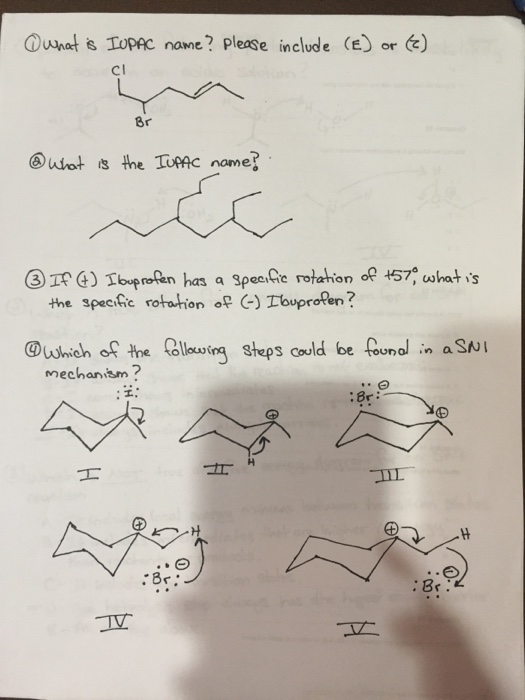 ① What is IUPAC name? Please include (E) or (Z)
Cl
Br
② What is the IUPAC name?
③ If (+) Ibuprofen has a specific rotation of +57°, what is
the specific rotation of (-) Ibuprofen?
④ Which of the following steps could be found in a SN1
mechanism?
:I:
:Br: ⊖
⊕
⊕
H
I
II
III
⊕
H
⊕
H
:Br: ⊖
:Br: ⊖
IV
V